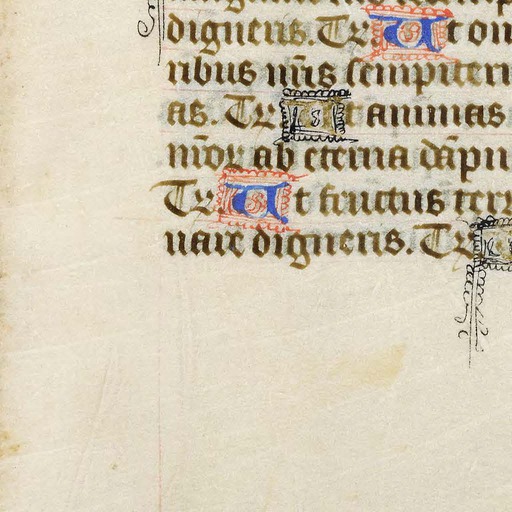 digneris. Te Ut om
ribus nr̄is sempitern
as. Te Ut animas
nr̄or ab eterna dāpn
Te Ut fructus terr
uare digneris. Te